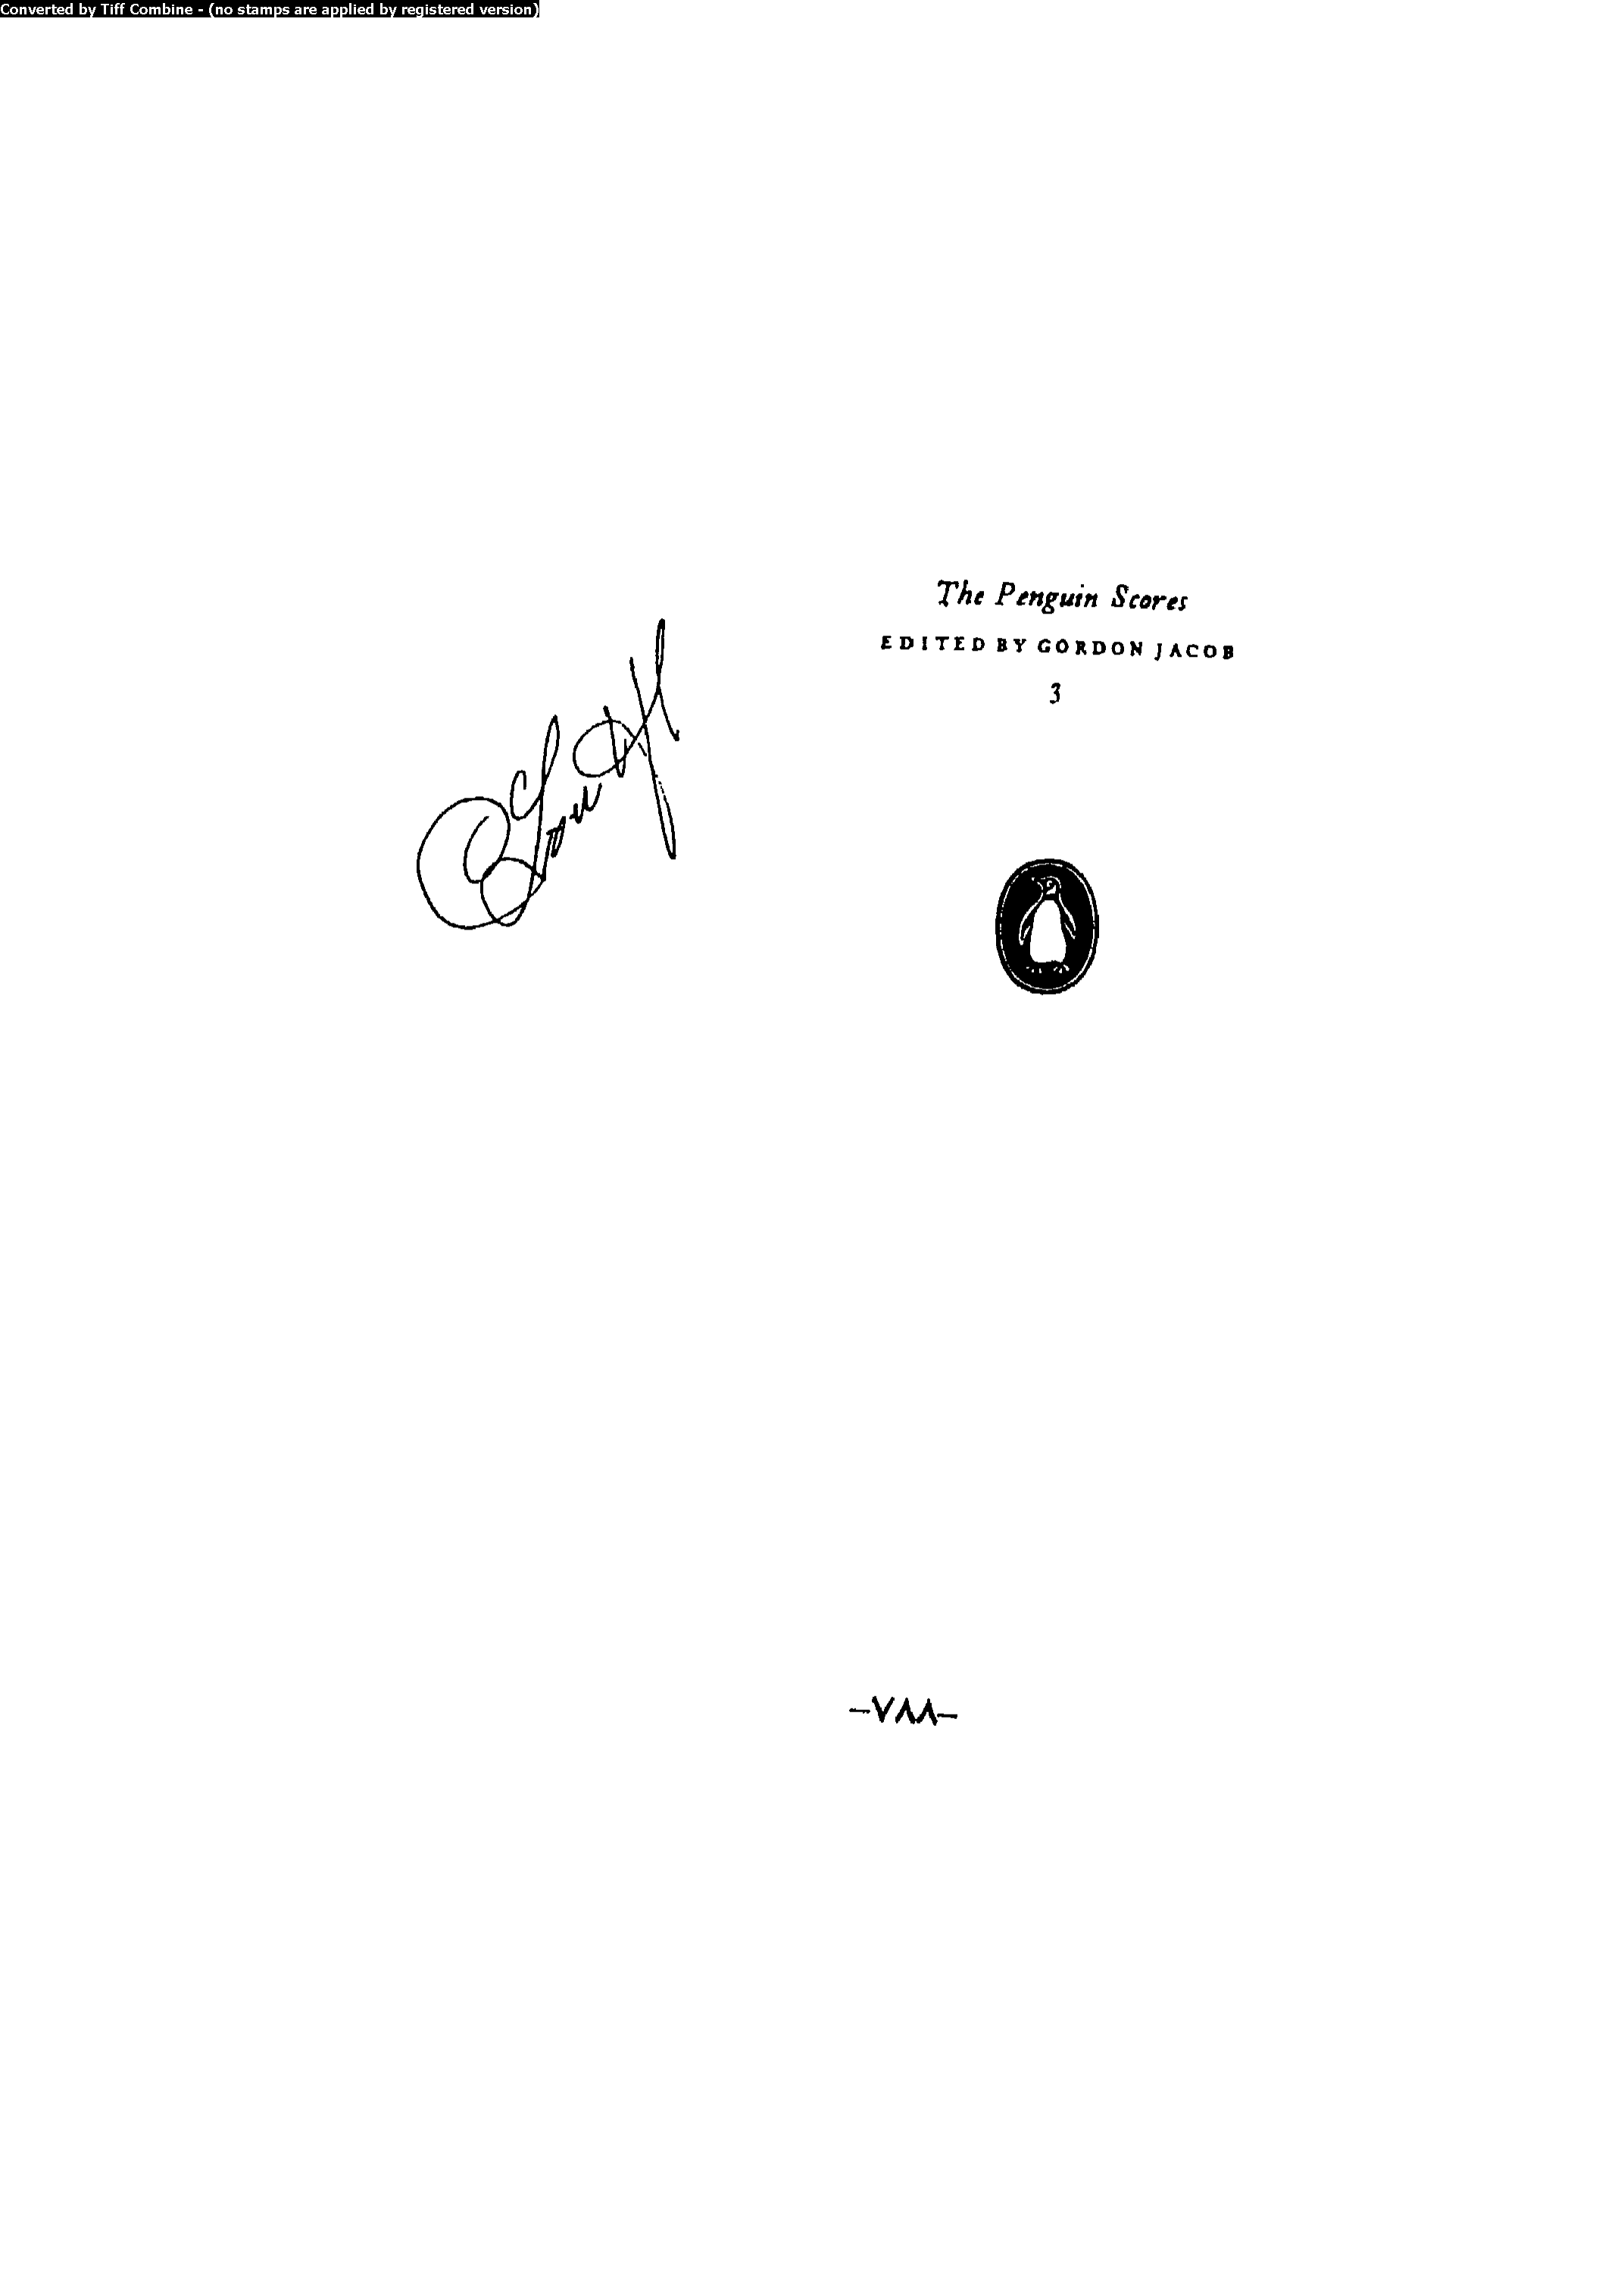 Converted by Tiff Combine - (no stamps are applied by registered version)
The Penguin Scores
EDITED BY GORDON JACOB
3